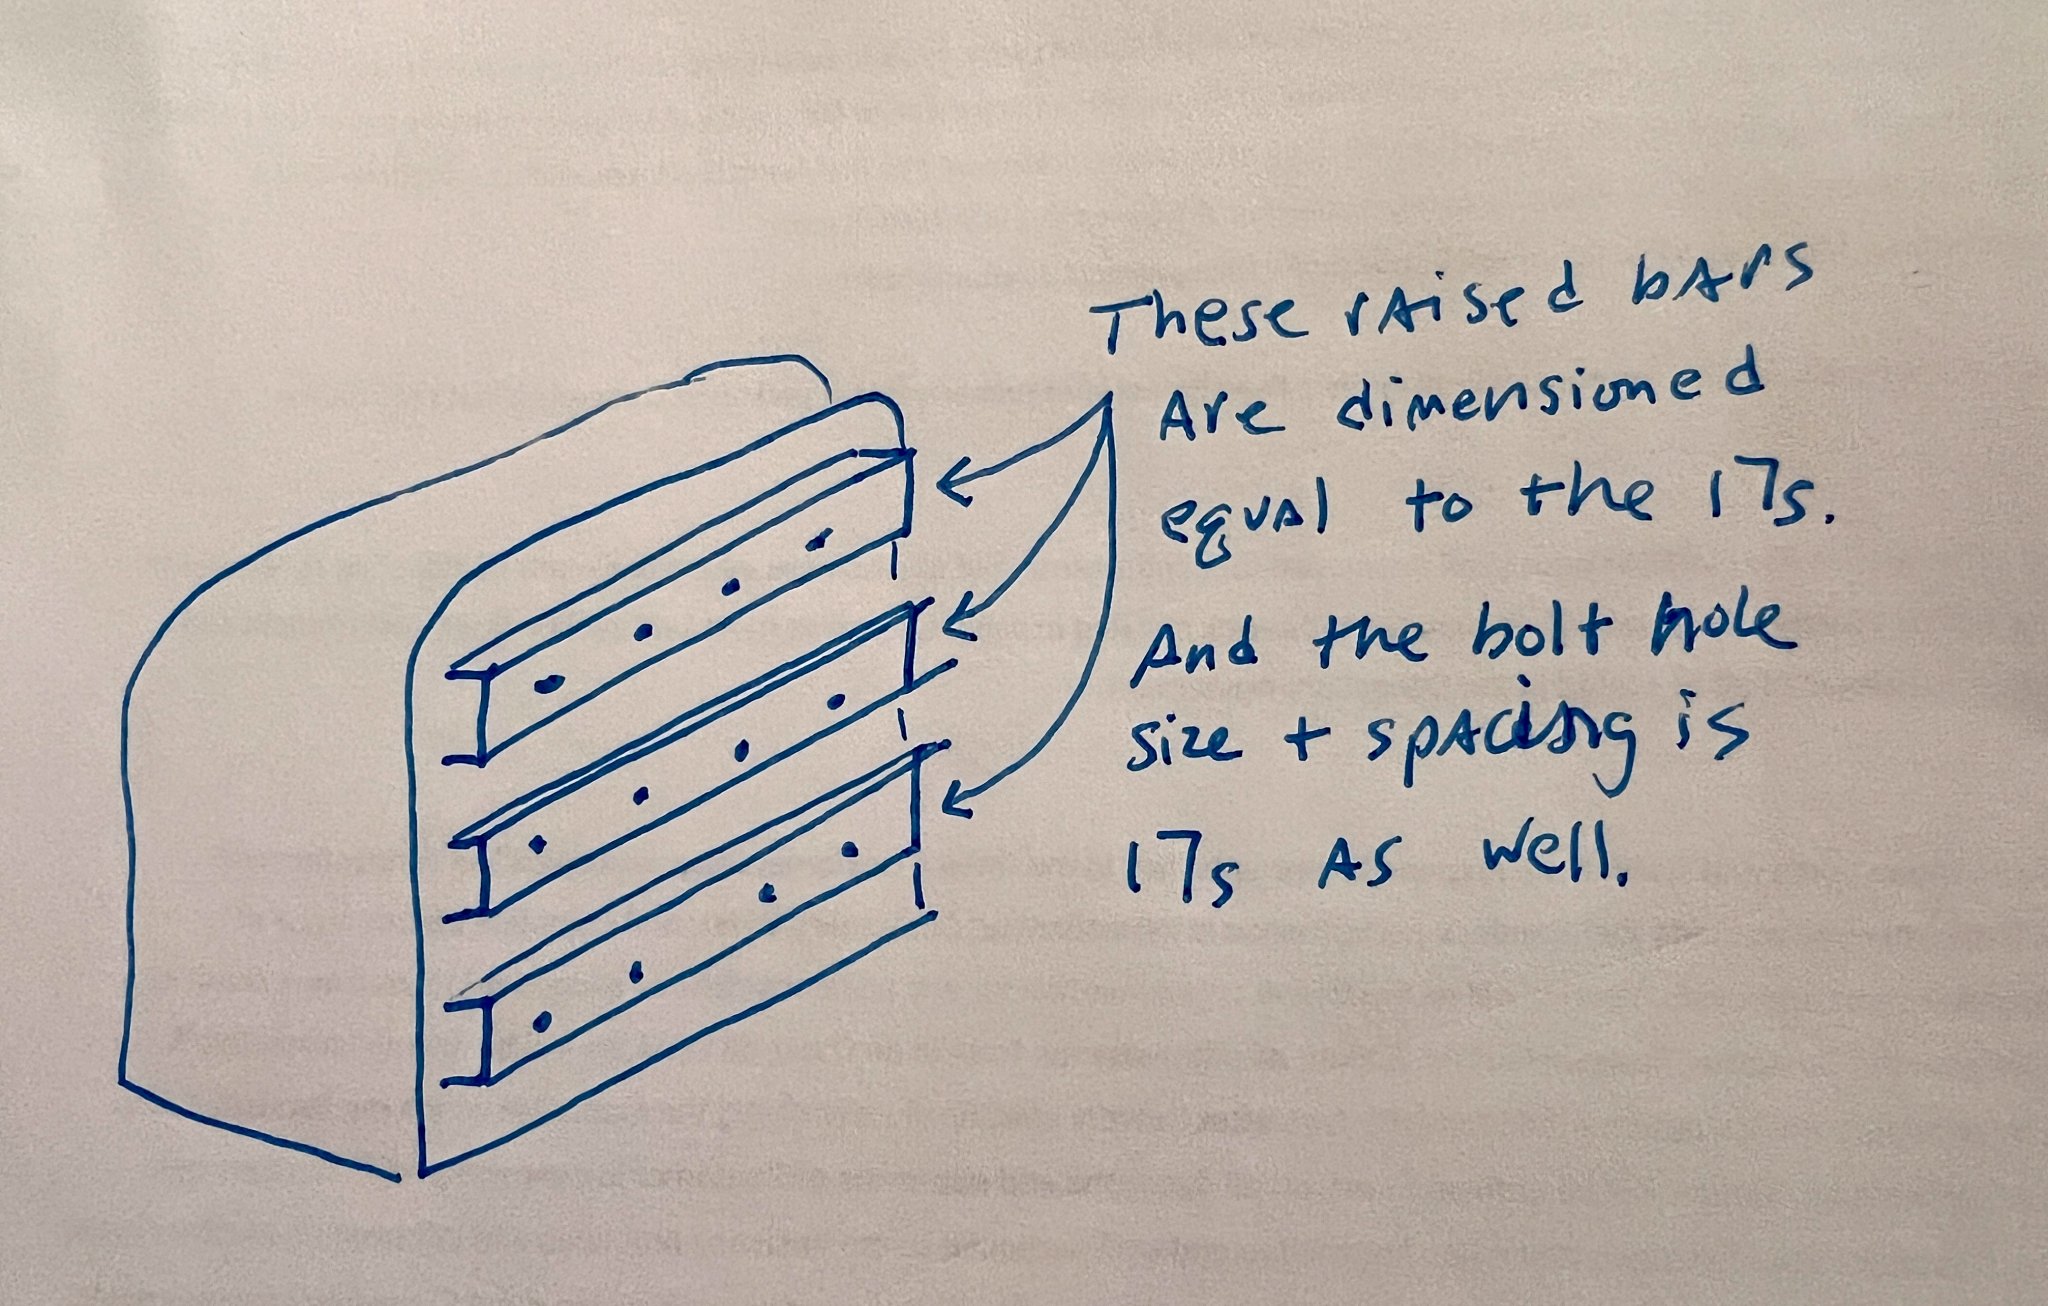 These raised bars
Are dimensioned
equal to the 17s.
And the bolt hole
size + spacing is
17s As well.